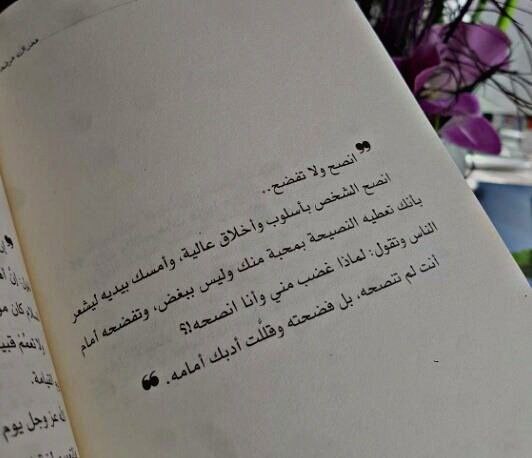 انصح ولا تفضح..
انصح الشخص بأسلوب وأخلاق عالية، وأمسك بيديه ليشعر
بأنك تعطيه النصيحة بمحبة منك وليس ببغض، وتفضحه أمام
الناس وتقول: لماذا غضب مني وأنا انصحه!؟
أنت لم تنصحه، بل فضحته وقللَّت أدبك أمامه.
السلام كان
ولا تعمّم
القيامة.
الله عز وجل يوم